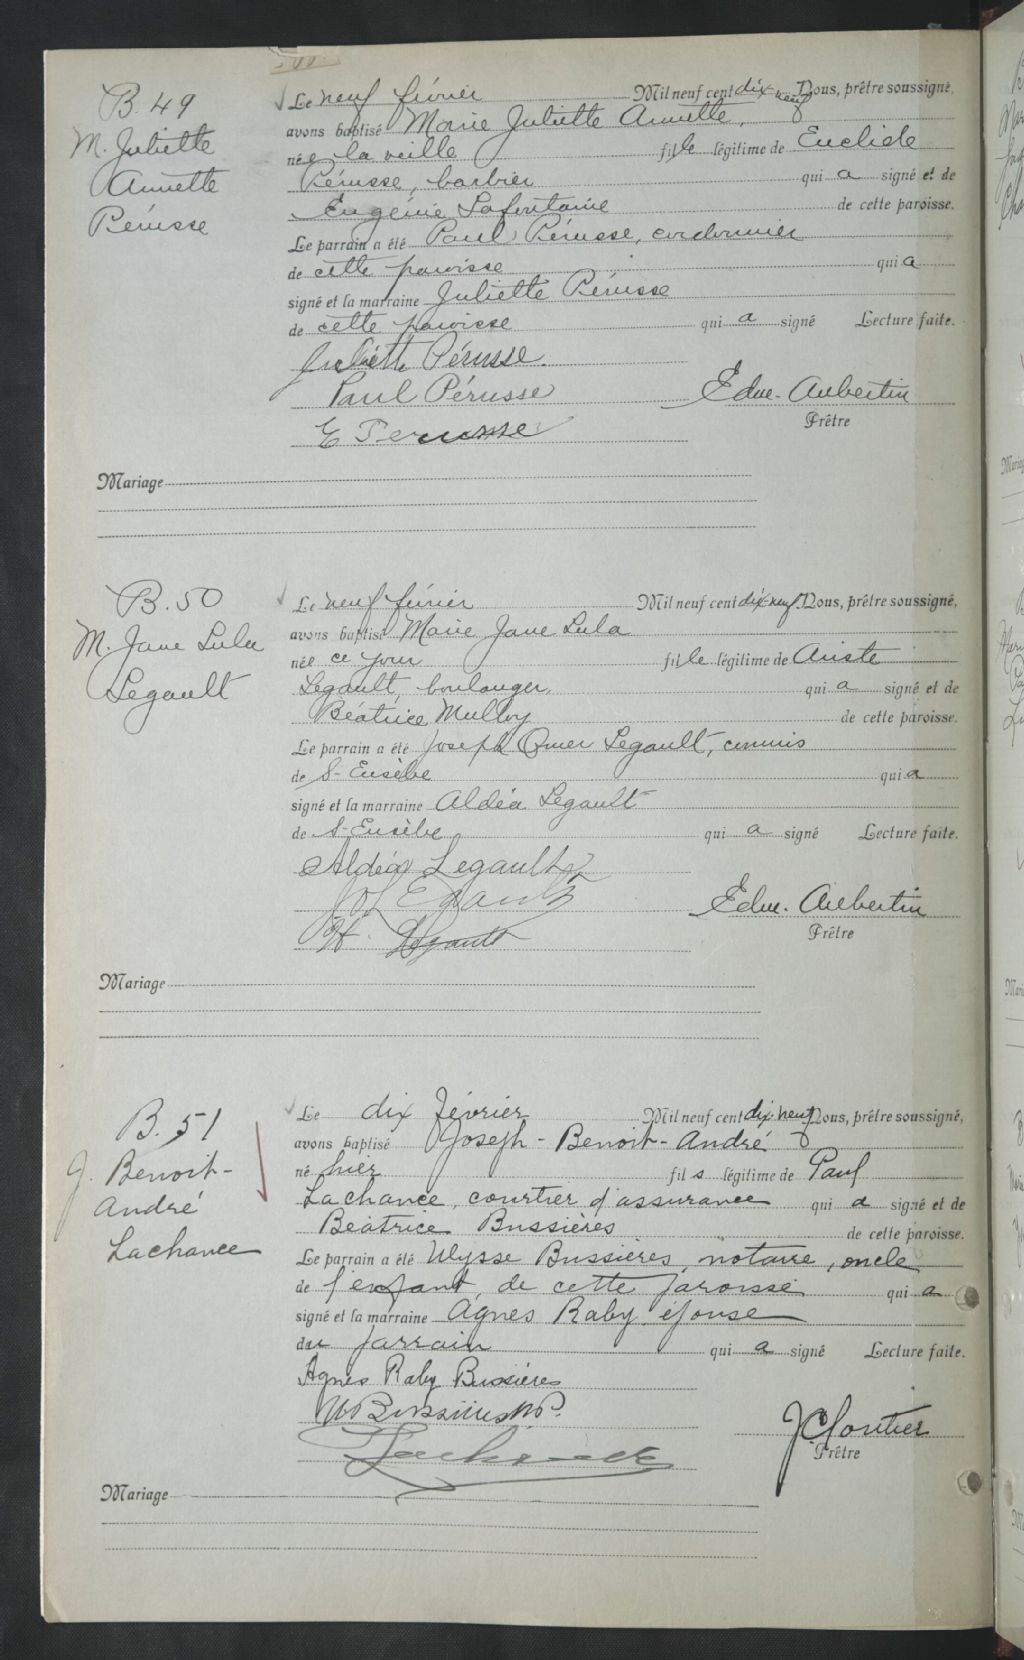 B. 49
M. Juliette
Annette
Pérusse
Le neuf février Mil neuf cent dix-neuf Nous, prêtre soussigné,
avons baptisé Marie Juliette Annette,
née la veille fille légitime de Euclide
Pérusse, barbier qui a signé et de
Eugénie Lafontaine de cette paroisse.
Le parrain a été Paul Pérusse, cordonnier
de cette paroisse qui a
signé et la marraine Juliette Pérusse
de cette paroisse qui a signé Lecture faite.
Juliette Pérusse.
Paul Pérusse
Edm. Aubertin
Prêtre
E Perusse
Mariage
B. 50
M. Jane Lula
Legault
Le neuf février Mil neuf cent dix-neuf. Nous, prêtre soussigné,
avons baptisé Marie Jane Lula
née ce jour fille légitime de Ariste
Legault, boulanger, qui a signé et de
Béatrice Mulloy de cette paroisse.
Le parrain a été Joseph Omer Legault, commis
de S-Eusèbe qui a
signé et la marraine Aldéa Legault
de S-Eusèbe qui a signé Lecture faite.
Aldéa Legault
Legault
Edm. Aubertin
Prêtre
Legault
Mariage
B. 51
J. Benoit-
André
Lachance
Le dix février Mil neuf cent dix-neuf Nous, prêtre soussigné,
avons baptisé Joseph-Benoit-André
né hier fils légitime de Paul
Lachance, courtier d'assurance qui a signé et de
Béatrice Bussières de cette paroisse.
Le parrain a été Ulysse Bussières, notaire, oncle
de l'enfant, de cette paroisse qui a
signé et la marraine Agnès Raby, épouse
du parrain qui a signé Lecture faite.
Agnès Raby Bussières
U Bussières N.P.
Lachance
J Cloutier
Prêtre
Mariage